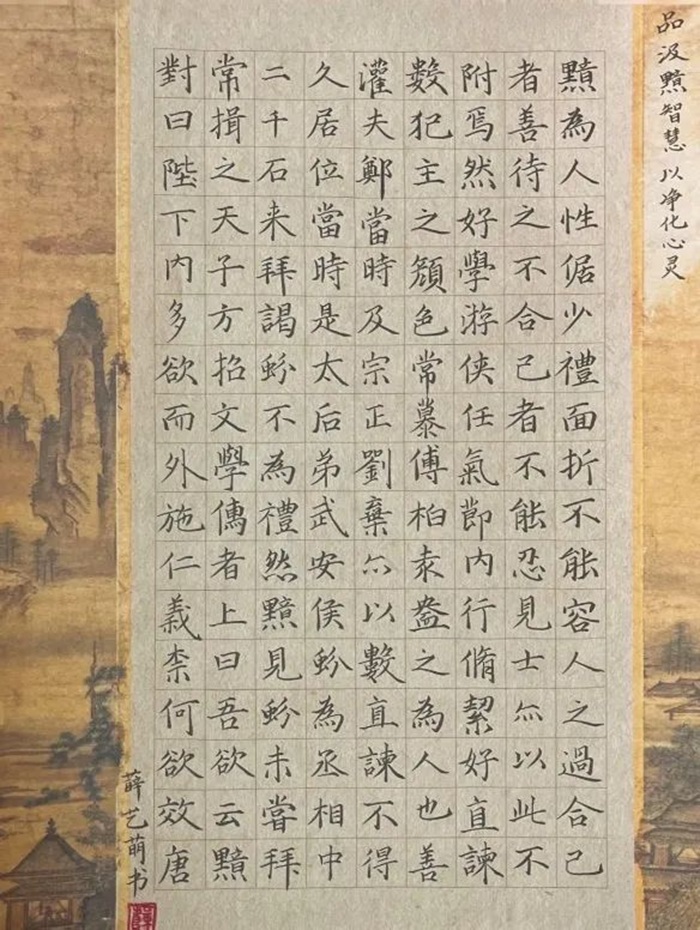 品汲黯智慧 以净化心灵
黯為人性倨少禮面折不能容人之過合己
者善待之不合己者不能忍見士亦以此不
附焉然好學游俠任氣節內行脩絜好直諫
數犯主之顏色常慕傅柏袁盎之為人也善
灌夫鄭當時及宗正劉棄亦以數直諫不得
久居位當時是太后弟武安侯蚡為丞相中
二千石来拜謁蚡不為禮然黯見蚡未嘗拜
常揖之天子方招文學儒者上曰吾欲云黯
對曰陛下內多欲而外施仁義柰何欲效唐
薛艺萌书